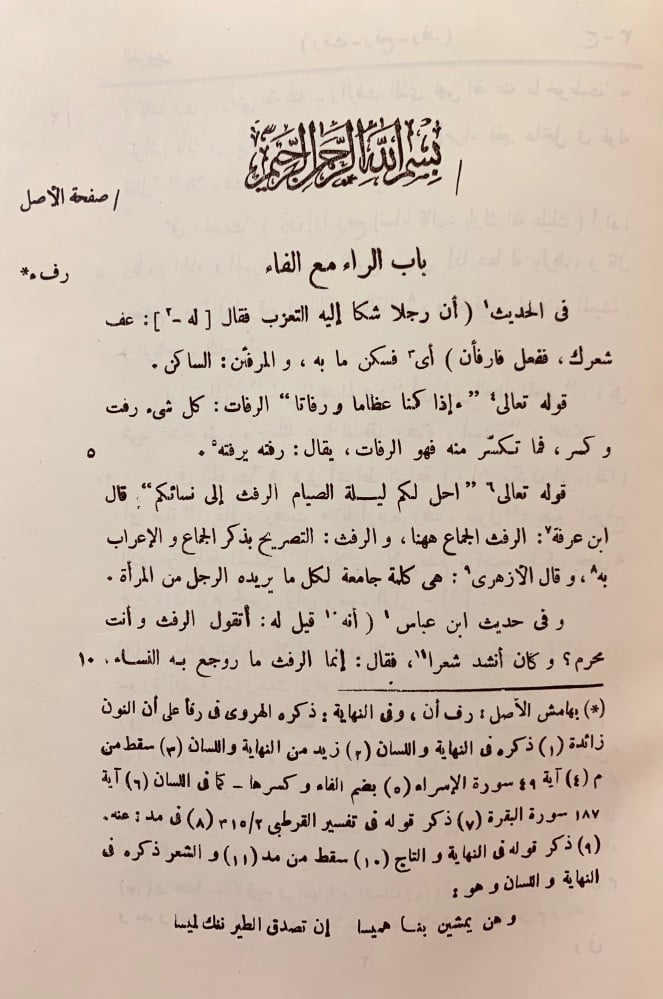 بسم الله الرحمن الرحيم /
/ صفحة الأصل
باب الراء مع الفاء
رفء*
فى الحديث١ ( أن رجلا شكا إليه التعزب فقال [ له -٢ ] : عف
شعرك ، ففعل فارفأن ) أى٣ فسكن ما به ، و المرفئن : الساكن .
قوله تعالى٤ ” ءإذا كنا عظاما و رفاتا “ الرفات : كل شىء رفت
و كسر ، فما تكسّر منه فهو الرفات ، يقال : رفته يرفته٥ . ٥
قوله تعالى٦ ” احل لكم ليلة الصيام الرفث إلى نسائكم “ قال
ابن عرفة٧ : الرفث الجماع ههنا ، و الرفث : التصريح بذكر الجماع و الإعراب
به٨ ، و قال الأزهرى٩ : هى كلمة جامعة لكل ما يريده الرجل من المرأة .
و فى حديث ابن عباس١ ( أنه١٠ قيل له : أتقول الرفث و أنت
محرم ؟ و كان أنشد شعرا١١ ، فقال : إنما الرفث ما روجع به النساء . ١٠
(*) بهامش الأصل : رف أن ، وفى النهاية : ذكره الهروى فى رفأ على أن النون
زائدة (١) ذكره فى النهاية واللسان (٢) زيد من النهاية واللسان (٣) سقط من
م (٤) آية ٤٩ سورة الإسراء (٥) بضم الفاء و كسرها - كما فى اللسان (٦) آية
١٨٧ سورة البقرة (٧) ذكر قوله فى تفسير القرطبى ٣١٥/٢ (٨) فى مد : عنه .
(٩) ذكر قوله فى النهاية و التاج (١٠) سقط من مد (١١) و الشعر ذكره فى
النهاية و اللسان و هو :
و هن يمشين بنا هميسا إن تصدق الطير ننك لميسا